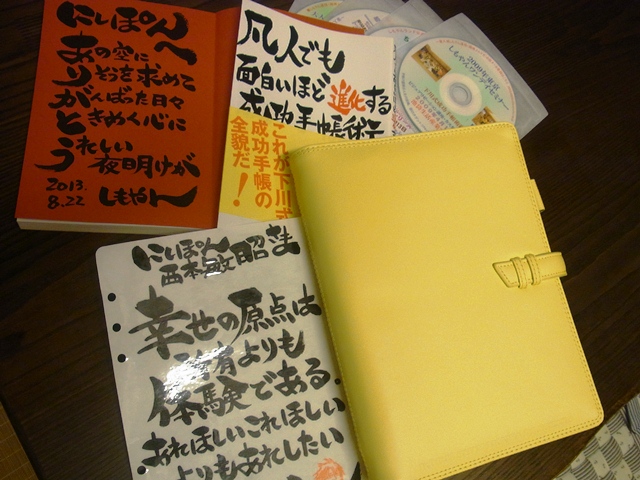 にしぽんへ
ありがとう
あの空に
りそうを求めて
がんばった日々
ときめく心に
うれしい
夜明けが
2013.
8.22
しもやん
凡人でも
面白いほど
進化する
成功手帳術
これが下川式
成功手帳の
全貌だ!
2009年東京
しもやんワンデイセミナー
にしぽん
西本敏昭さま
幸せの原点は
所有よりも
体験である。
あれほしいこれほしい
よりもあれしたい